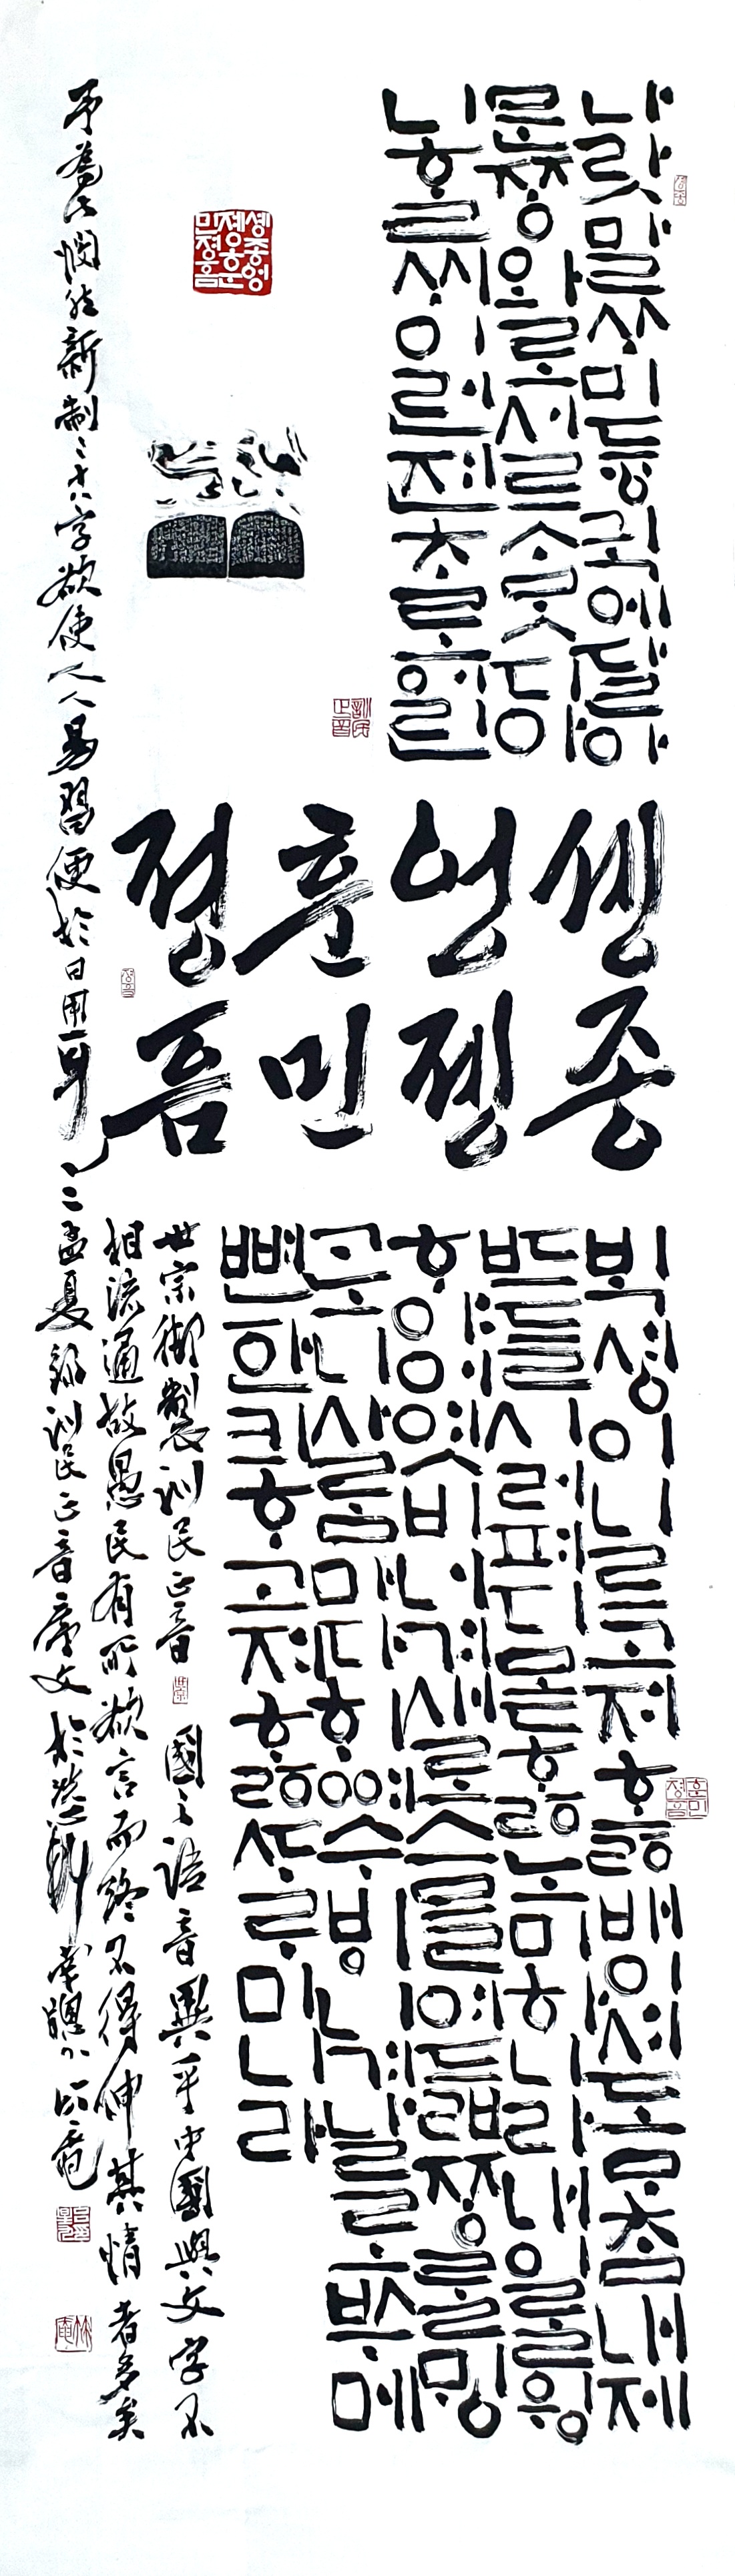 나랏말ᄊᆞ미듕귁에달아
문ᄍᆞᆼ와로서르ᄉᆞᄆᆞᆺ디아
니ᄒᆞᆯᄊᆡ이런젼ᄎᆞ로어린
솅종
엉졩
훈민
졍ᅙᅳᆷ
빅셩이니르고져ᄒᆞᇙ배이셔도ᄆᆞᄎᆞᆷ내제
ᄠᅳ들시러펴디몯ᄒᆞᇙ노미하니라내이ᄅᆞᆯ윙
ᄒᆞ야어엿비너겨새로스믈여듧ᄍᆞᆼᄅᆞᆯᄆᆡᆼ
ᄀᆞ노니사ᄅᆞᆷ마다ᄒᆡᅇᅧ수ᄫᅵ니겨날로ᄡᅮ메
뼌한킈ᄒᆞ고져ᄒᆞᇙᄯᆞᄅᆞ미니라
世宗御製訓民正音 國之語音異乎中國與文字不
相流通故愚民有所欲言而終不得伸其情者多矣
予爲此憫然新制二十八字欲使人人易習便於日用耳 孟夏錄訓民正音序文於
訓民正音
훈민정음